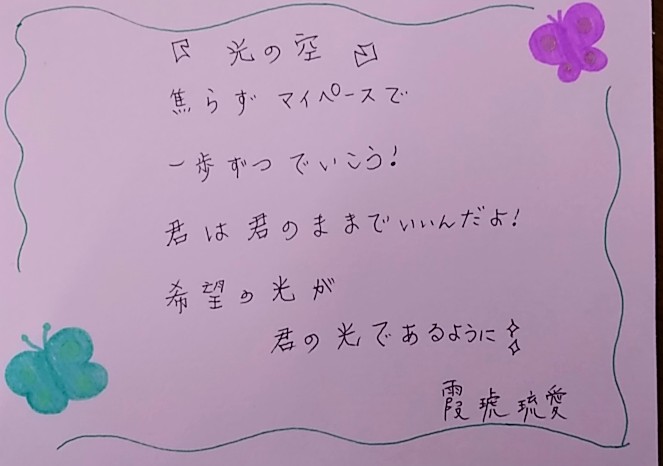 『光の空』
焦らずマイペースで
一歩ずつでいこう!
君は君のままでいいんだよ!
希望の光が
君の光であるように✧✧
霞琥琉愛